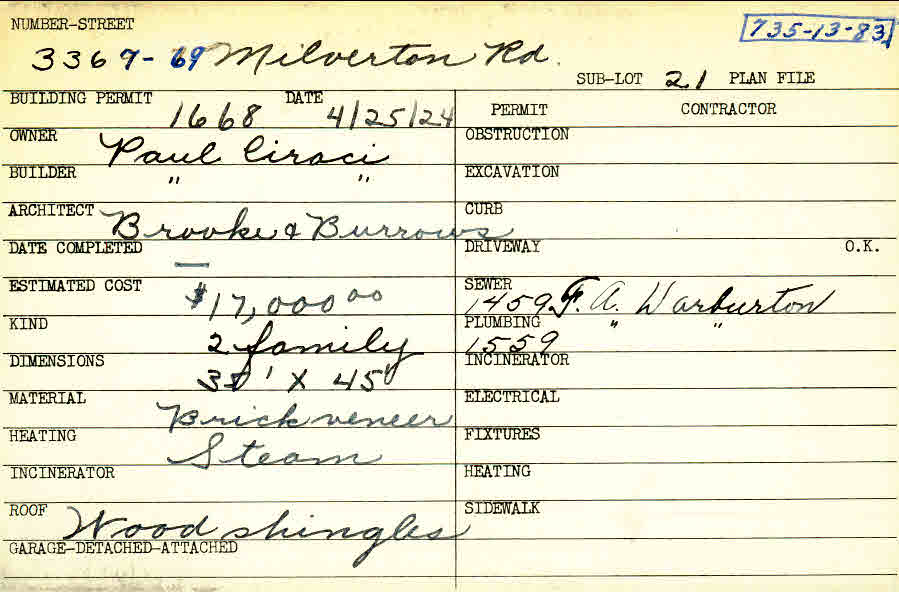 NUMBER-STREET
735-13-83
3367-69 Milverton Rd.
SUB-LOT 21 PLAN FILE
BUILDING PERMIT 1668 DATE 4/25/24
PERMIT CONTRACTOR
OWNER Paul Ciraci
OBSTRUCTION
BUILDER " "
EXCAVATION
ARCHITECT Brooke & Burrows
CURB
DATE COMPLETED —
DRIVEWAY O.K.
ESTIMATED COST $17,000 00
SEWER 1459 F. A. Warburton
KIND 2 family
PLUMBING 1559 " "
DIMENSIONS x 45'
INCINERATOR
MATERIAL Brick veneer
ELECTRICAL
HEATING Steam
FIXTURES
INCINERATOR
HEATING
ROOF Wood shingles
SIDEWALK
GARAGE-DETACHED-ATTACHED